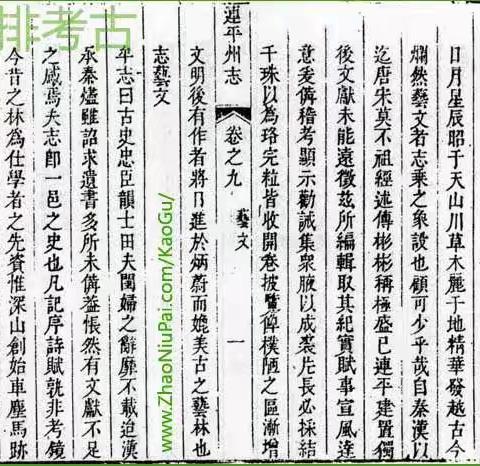 排考古
日月星辰昭于天山川草木麗于地精華發越古今
爛然藝文者志乘之象設也顧可少乎哉自秦漢以
迄唐宋莫不祖經述傳彬彬稱極盛已連平建置獨
後文獻未能遠徵茲所編輯取其紀實賦事宣風達
意爰備稽考顯示勸誡集衆腋以成裘片長必採結
千珠以為珞完粒皆收開卷披覽俾樸陋之區漸增
連平州志 卷之九 藝文 一
文明後有作者將進於炳蔚而媲美古之藝林也
志藝文
牟志曰古史忠臣韻士田夫閨婦之辭靡不載迨漢
承秦燼雖詔求遺書多所未備益悵然有文獻不足
之感焉夫志即一邑之史也凡記序詩賦孰非考鏡
今昔之林為仕學者之先資惟深山創始車塵馬跡
www.ZhaoNiuPai.com/KaoGu/